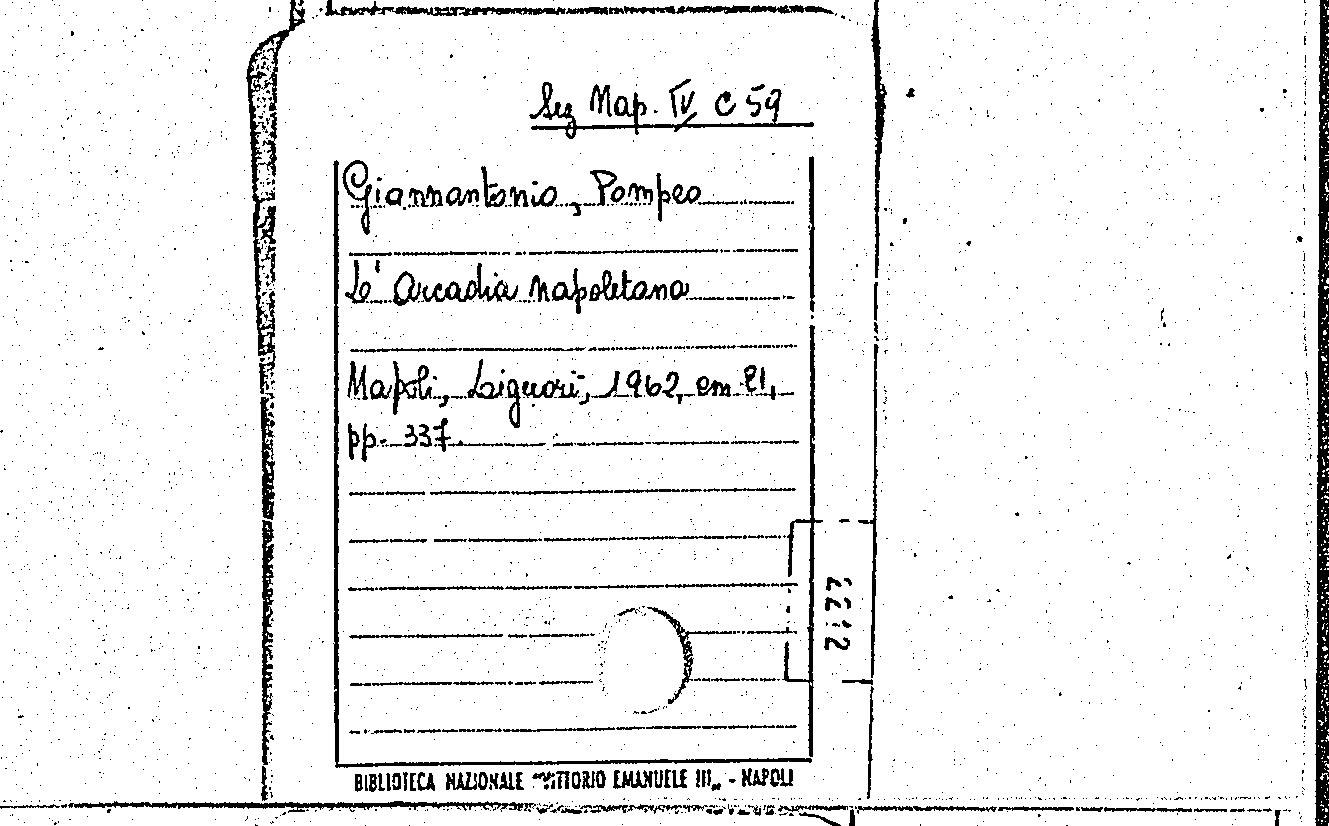 Sez Nap. IV C 59
Giannantonio, Pompeo
L'Arcadia napoletana
Napoli, Liguori, 1962, cm 21,
pp. 337.
BIBLIOTECA NAZIONALE "VITTORIO EMANUELE III„ - NAPOLI